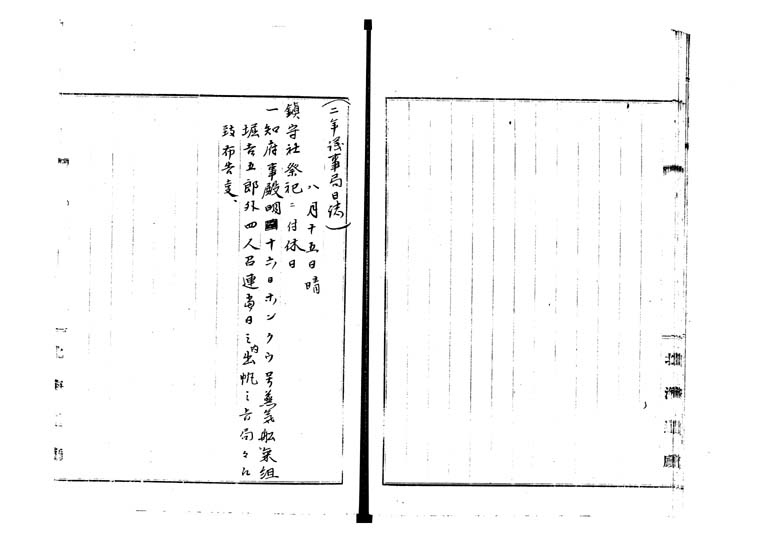 (二年議事局日誌)
八月十五日晴
鎮守社祭祀ニ付休日
一知府事殿明十六日ホンクウ号蒸気船乗組
堀吉五郎外四人召連当日之内出帆之旨局々江
致布告候、